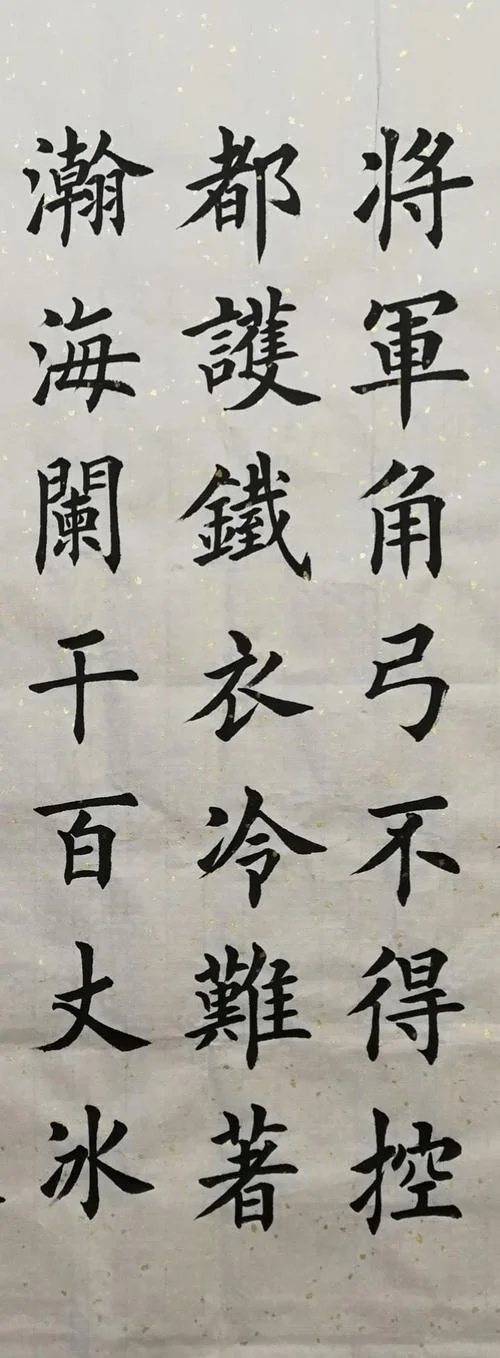 將軍角弓不得控
都護鐵衣冷難著
瀚海闌干百丈冰